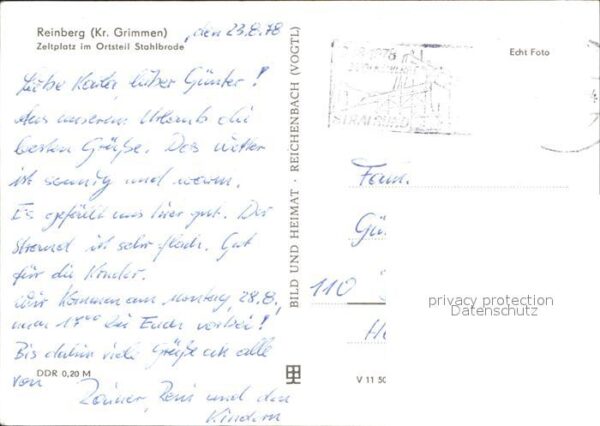 Reinberg (Kr. Grimmen)
Zeltplatz im Ortsteil Stahlbrode
, den 23.8.78
Liebe Karla, lieber Günter!
Aus unserem Urlaub die
besten Grüße. Das Wetter
ist sonnig und warm.
Es gefällt uns hier gut. Der
Strand ist sehr flach. Gut
für die Kinder.
Wir kommen am Montag, 28.8.,
17⁰⁰ zu Euch vorbei!
Bis dahin viele Grüße an alle
von Rainer, Reni und den
Kindern
DDR 0,20 M
BILD UND HEIMAT · REICHENBACH (VOGTL)
STRALSUND
Echt Foto
Fam.
Gü
110
He
V 11 50
privacy protection
Datenschutz